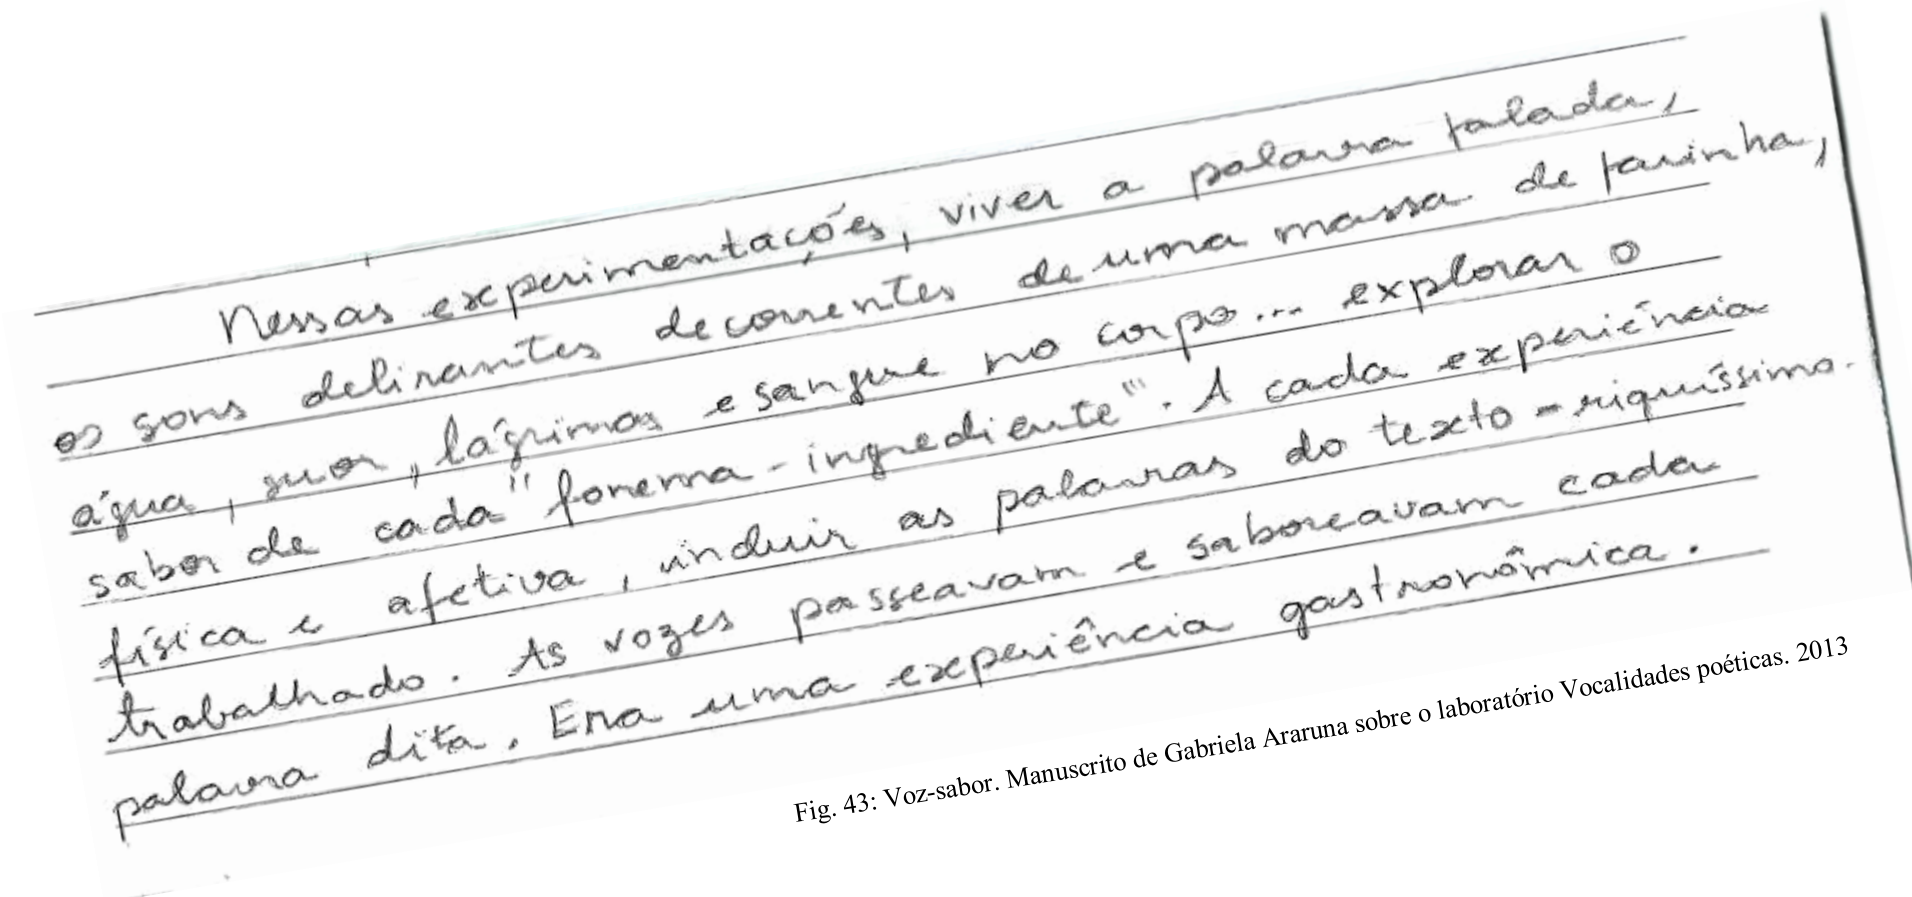 Nessas experimentações, viver a palavra falada,
os sons delirantes decorrentes de uma massa de farinha,
água, suor, lágrimas e sangue no corpo... explorar o
sabor de cada "fonema-ingrediente". A cada experiência
física e afetiva, incluir as palavras do texto - riquíssimo.
trabalhado. As vozes passeavam e saboreavam cada
palavra dita. Era uma experiência gastronômica.
Fig. 43: Voz-sabor. Manuscrito de Gabriela Araruna sobre o laboratório Vocalidades poéticas. 2013